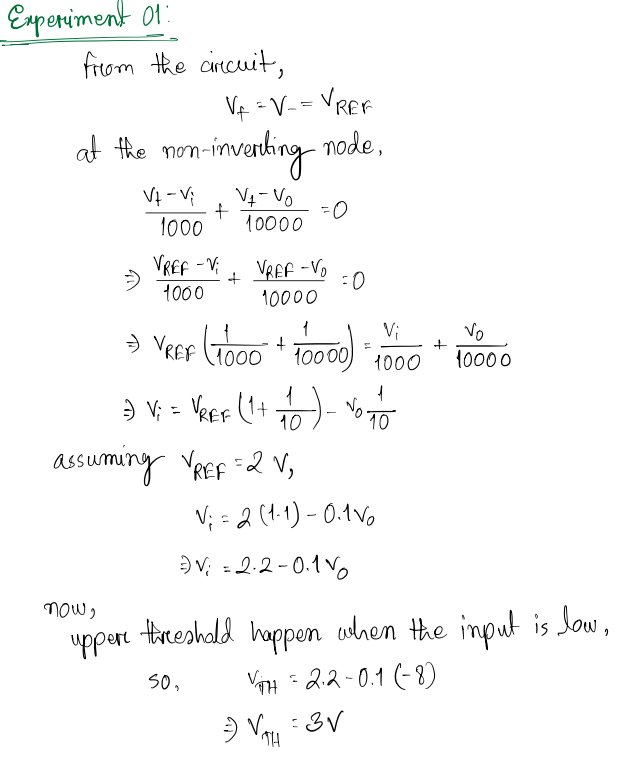 Experiment 01:
from the circuit,
V+ = V- = VREF
at the non-inverting node,
(V+ - Vi)/1000 + (V+ - Vo)/10000 = 0
⇒ (VREF - Vi)/1000 + (VREF - Vo)/10000 = 0
⇒ VREF (1/1000 + 1/10000) = Vi/1000 + Vo/10000
⇒ Vi = VREF (1 + 1/10) - Vo 1/10
assuming VREF = 2 V,
Vi = 2 (1.1) - 0.1 Vo
⇒ Vi = 2.2 - 0.1 Vo
now,
upper threshold happen when the input is low,
so, VTH = 2.2 - 0.1 (-8)
⇒ VTH = 3V